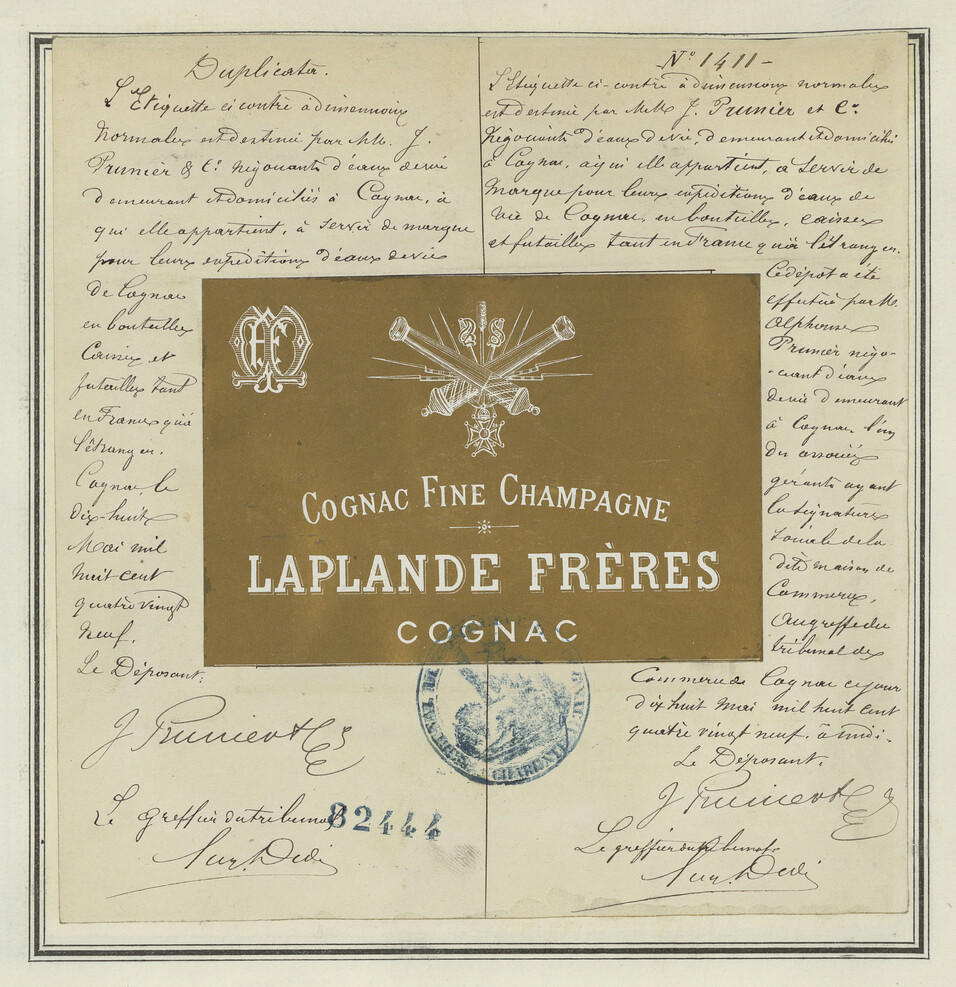 Duplicata.
L'Etiquette ci contre à dimensions
normales est destinée par MM. J.
Prunier & Cie négociants d'eaux de vie
demeurant et domiciliés à Cognac, à
qui elle appartient, à servir de marque
pour leurs expéditions d'eaux de vie
de Cognac
en bouteilles
Caisses et
futailles tant
en France qu'à
l'étranger.
Cognac, le
dix-huit
Mai mil
huit cent
quatre vingt
neuf.
Le Déposant:
J Prunier & Cie
Le greffier du tribunal
82444
N° 1411 -
L'Etiquette ci-contre à dimensions normales
est destinée par MM. J. Prunier et Cie
Négociants d'eaux de vie, demeurant et domiciliés
à Cognac, à qui elle appartient, à servir de
Marque pour leurs expéditions d'eaux de
vie de Cognac, en bouteilles, caisses
et futailles tant en France qu'à l'étranger.
Ce dépôt a été
effectué par M.
Alphonse
Prunier négo-
-ciant d'eaux
de vie demeurant
à Cognac l'un
des associés
gérants ayant
la signature
sociale de la
dite maison de
Commerce,
au greffe du
tribunal de
Commerce de Cognac ce jour
dix huit Mai mil huit cent
quatre vingt neuf. à midi.
Le Déposant.
J Prunier & Cie
Le greffier du tribunal
COGNAC FINE CHAMPAGNE
LAPLANDE FRÈRES
COGNAC
CHARENTE